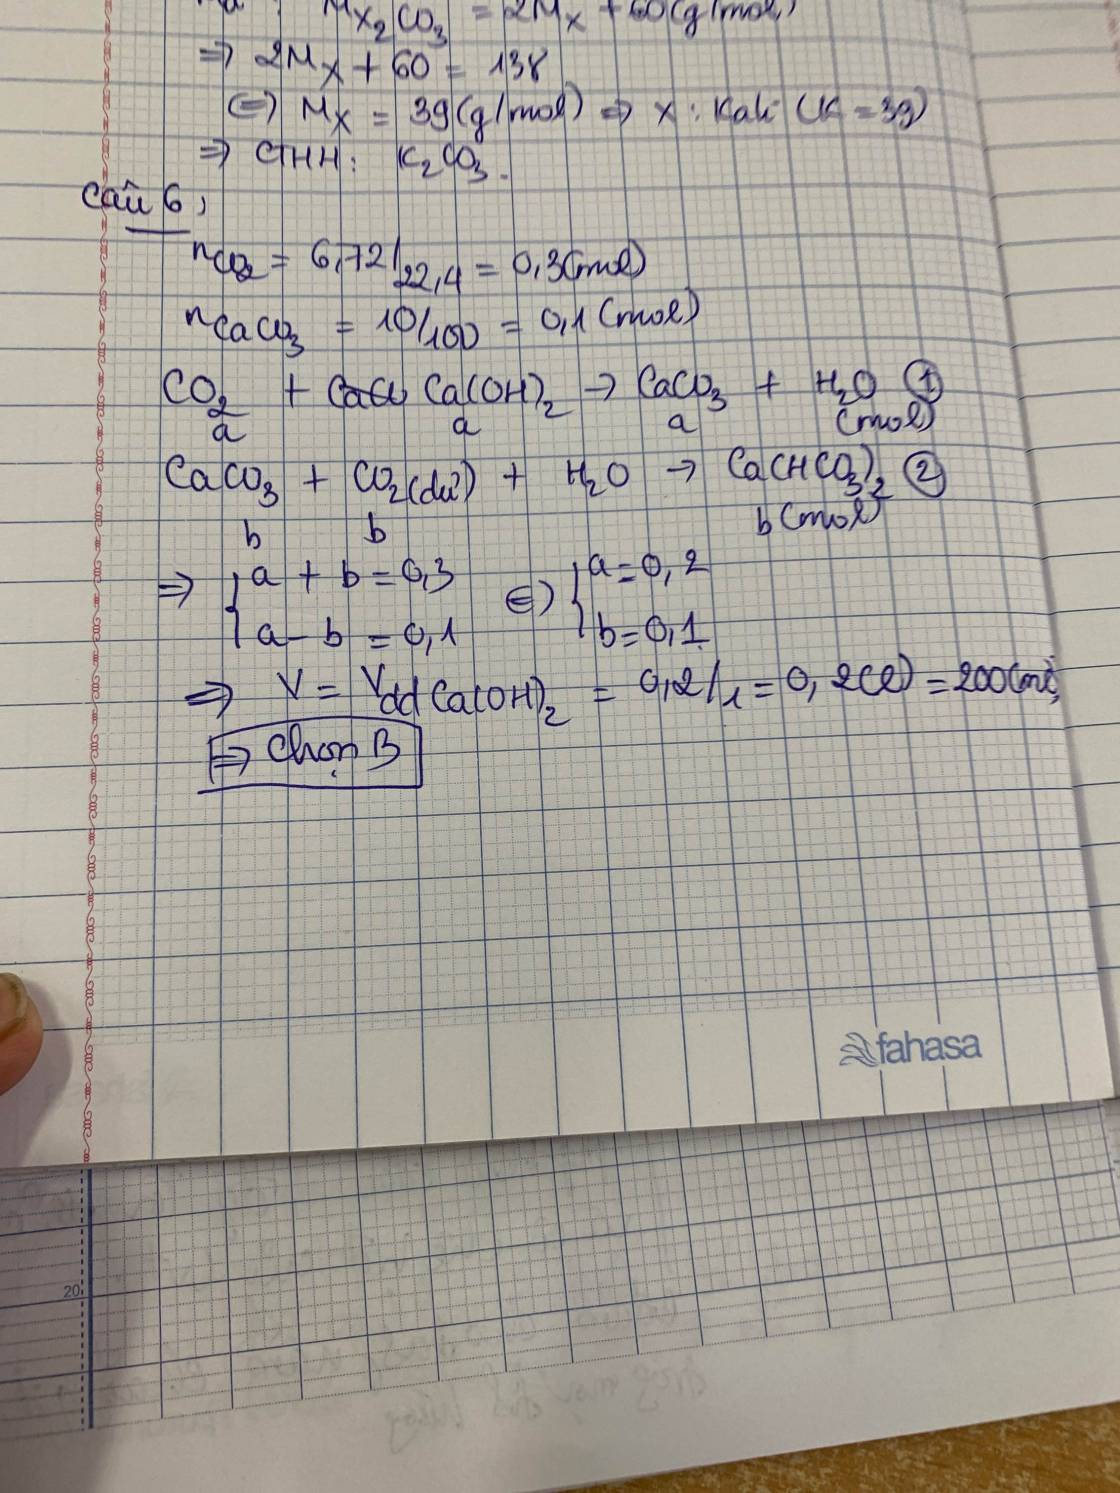 M_X₂CO₃ = 2M_X + 60 (g/mol)
⇒ 2M_X + 60 = 138
⇔ M_X = 39 (g/mol) ⇒ X : Kali (K = 39)
⇒ CTHH : K₂CO₃.
Câu 6,
n_CO₂ = 6,72/22,4 = 0,3 (mol)
n_CaCO₃ = 10/100 = 0,1 (mol)
CO₂ + Ca(OH)₂ → CaCO₃ + H₂O ①
a a a (mol)
CaCO₃ + CO₂ (dư) + H₂O → Ca(HCO₃)₂ ②
b b b (mol)
⇒ { a + b = 0,3 ⇔ { a = 0,2
a - b = 0,1 b = 0,1
⇒ V = V_dd Ca(OH)₂ = 0,2/1 = 0,2 (l) = 200 (ml)
⇒ Chọn B
fahasa
20